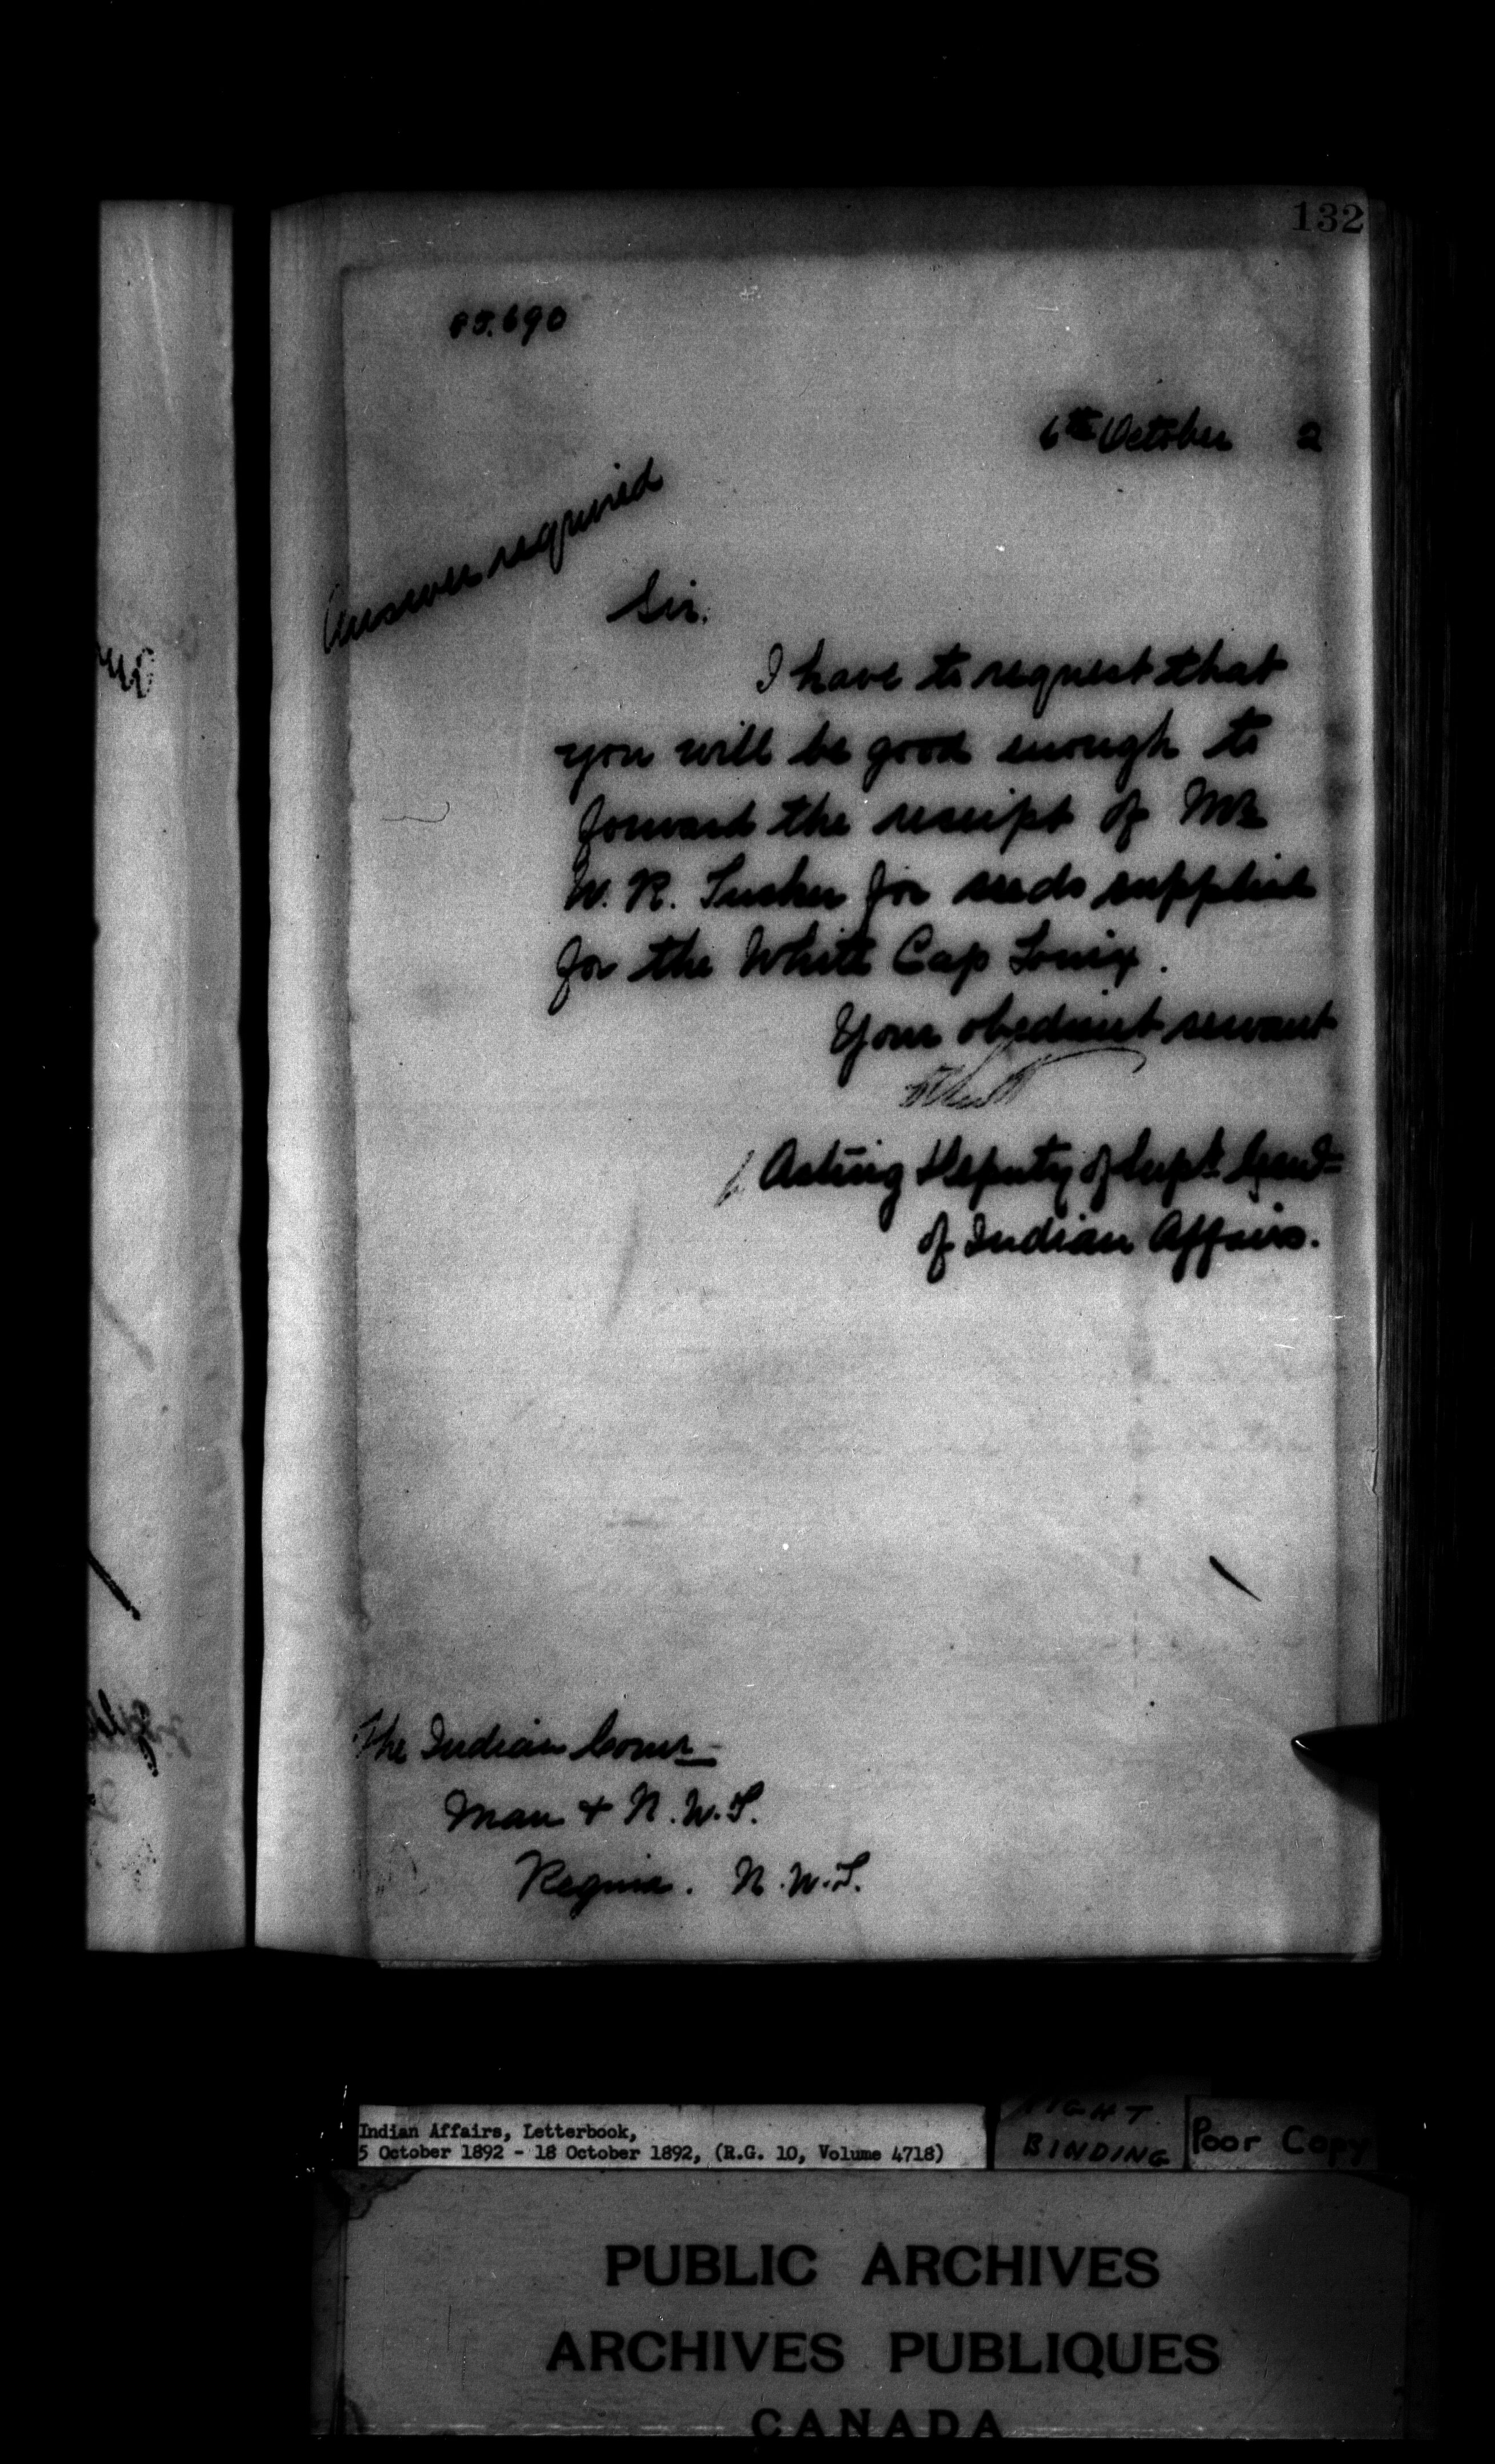 132
85.690
6th October 2
Answer required
Sir.
I have to request that
you will be good enough to
forward the receipt of Mr
W. R. Tucker for seeds supplied
for the White Cap Sioux.
Your obedient servant
Acting Deputy of Supt. Genl
of Indian Affairs.
The Indian Comr
Man & N.W.T.
Regina. N.W.T.
Indian Affairs, Letterbook,
5 October 1892 - 18 October 1892, (R.G. 10, Volume 4718)
BINDING
Poor Copy
PUBLIC ARCHIVES
ARCHIVES PUBLIQUES
CANADA